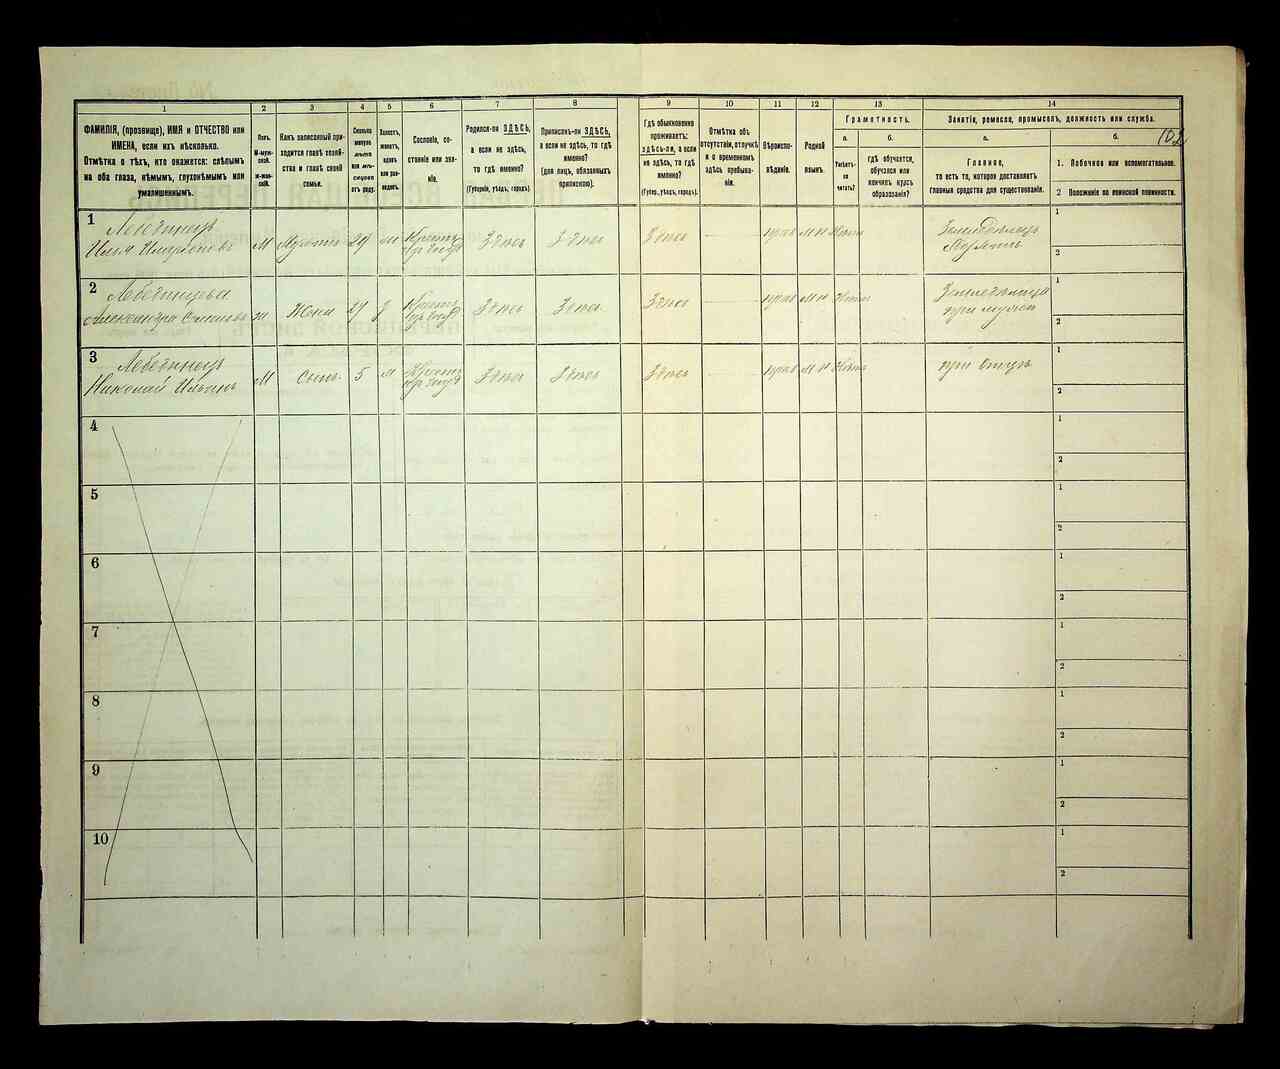 102
1 2 3 4 5 6 7 8 9 10 11 12 13 14
ФАМИЛІЯ, (прозвище), ИМЯ и ОТЧЕСТВО или
ИМЕНА, если ихъ нѣсколько.
Отмѣтка о тѣхъ, кто окажется: слѣпымъ
на оба глаза, нѣмымъ, глухонѣмымъ или
умалишеннымъ.
Полъ.
М-муж-
ской.
Ж-жен-
скій.
Какъ записанный при-
ходится главѣ хозяй-
ства и главѣ своей
семьи.
Сколько
минуло
лѣтъ
или мѣ-
сяцевъ
отъ роду.
Холостъ,
женатъ,
вдовъ
или раз-
веденъ.
Сословіе, со-
стояніе или зва-
ніе.
Родился-ли ЗДѢСЬ,
а если не здѣсь,
то гдѣ именно?
(Губернія, уѣздъ, городъ).
Приписанъ-ли ЗДѢСЬ,
а если не здѣсь, то гдѣ
именно?
(для лицъ, обязанныхъ
припискою).
Гдѣ обыкновенно
проживаетъ:
здѣсь-ли, а если
не здѣсь, то гдѣ
именно?
(Губер., уѣздъ, городъ).
Отмѣтка объ
отсутствіи, отлучкѣ
и о временномъ
здѣсь пребыва-
ніи.
Вѣроиспо-
вѣданіе.
Родной
языкъ.
Грамотность.
а.
Умѣетъ-
ли
читать?
б.
гдѣ обучается,
обучался или
кончилъ курсъ
образованія?
Занятіе, ремесло, промыселъ, должность или служба.
а.
Главное,
то есть то, которое доставляетъ
главныя средства для существованія.
б.
1. Побочное или вспомогательное.
2 Положеніе по воинской повинности.
1
Лебединецъ
Илья М 29 ж Крест. Здѣсь Здѣсь Здѣсь прав м н Нѣтъ
Земледѣлецъ
1
2
2
Лебединцева
Александра ж Жена 27 з Крест. Здѣсь Здѣсь Здѣсь прав м н Нѣтъ
при мужѣ
1
2
3
Лебединецъ
Николай Ильинъ М Сынъ 5 Крест. Здѣсь Здѣсь Здѣсь прав м н Нѣтъ при отцѣ
1
2
4
1
2
5
1
2
6
1
2
7
1
2
8
1
2
9
1
2
10
1
2